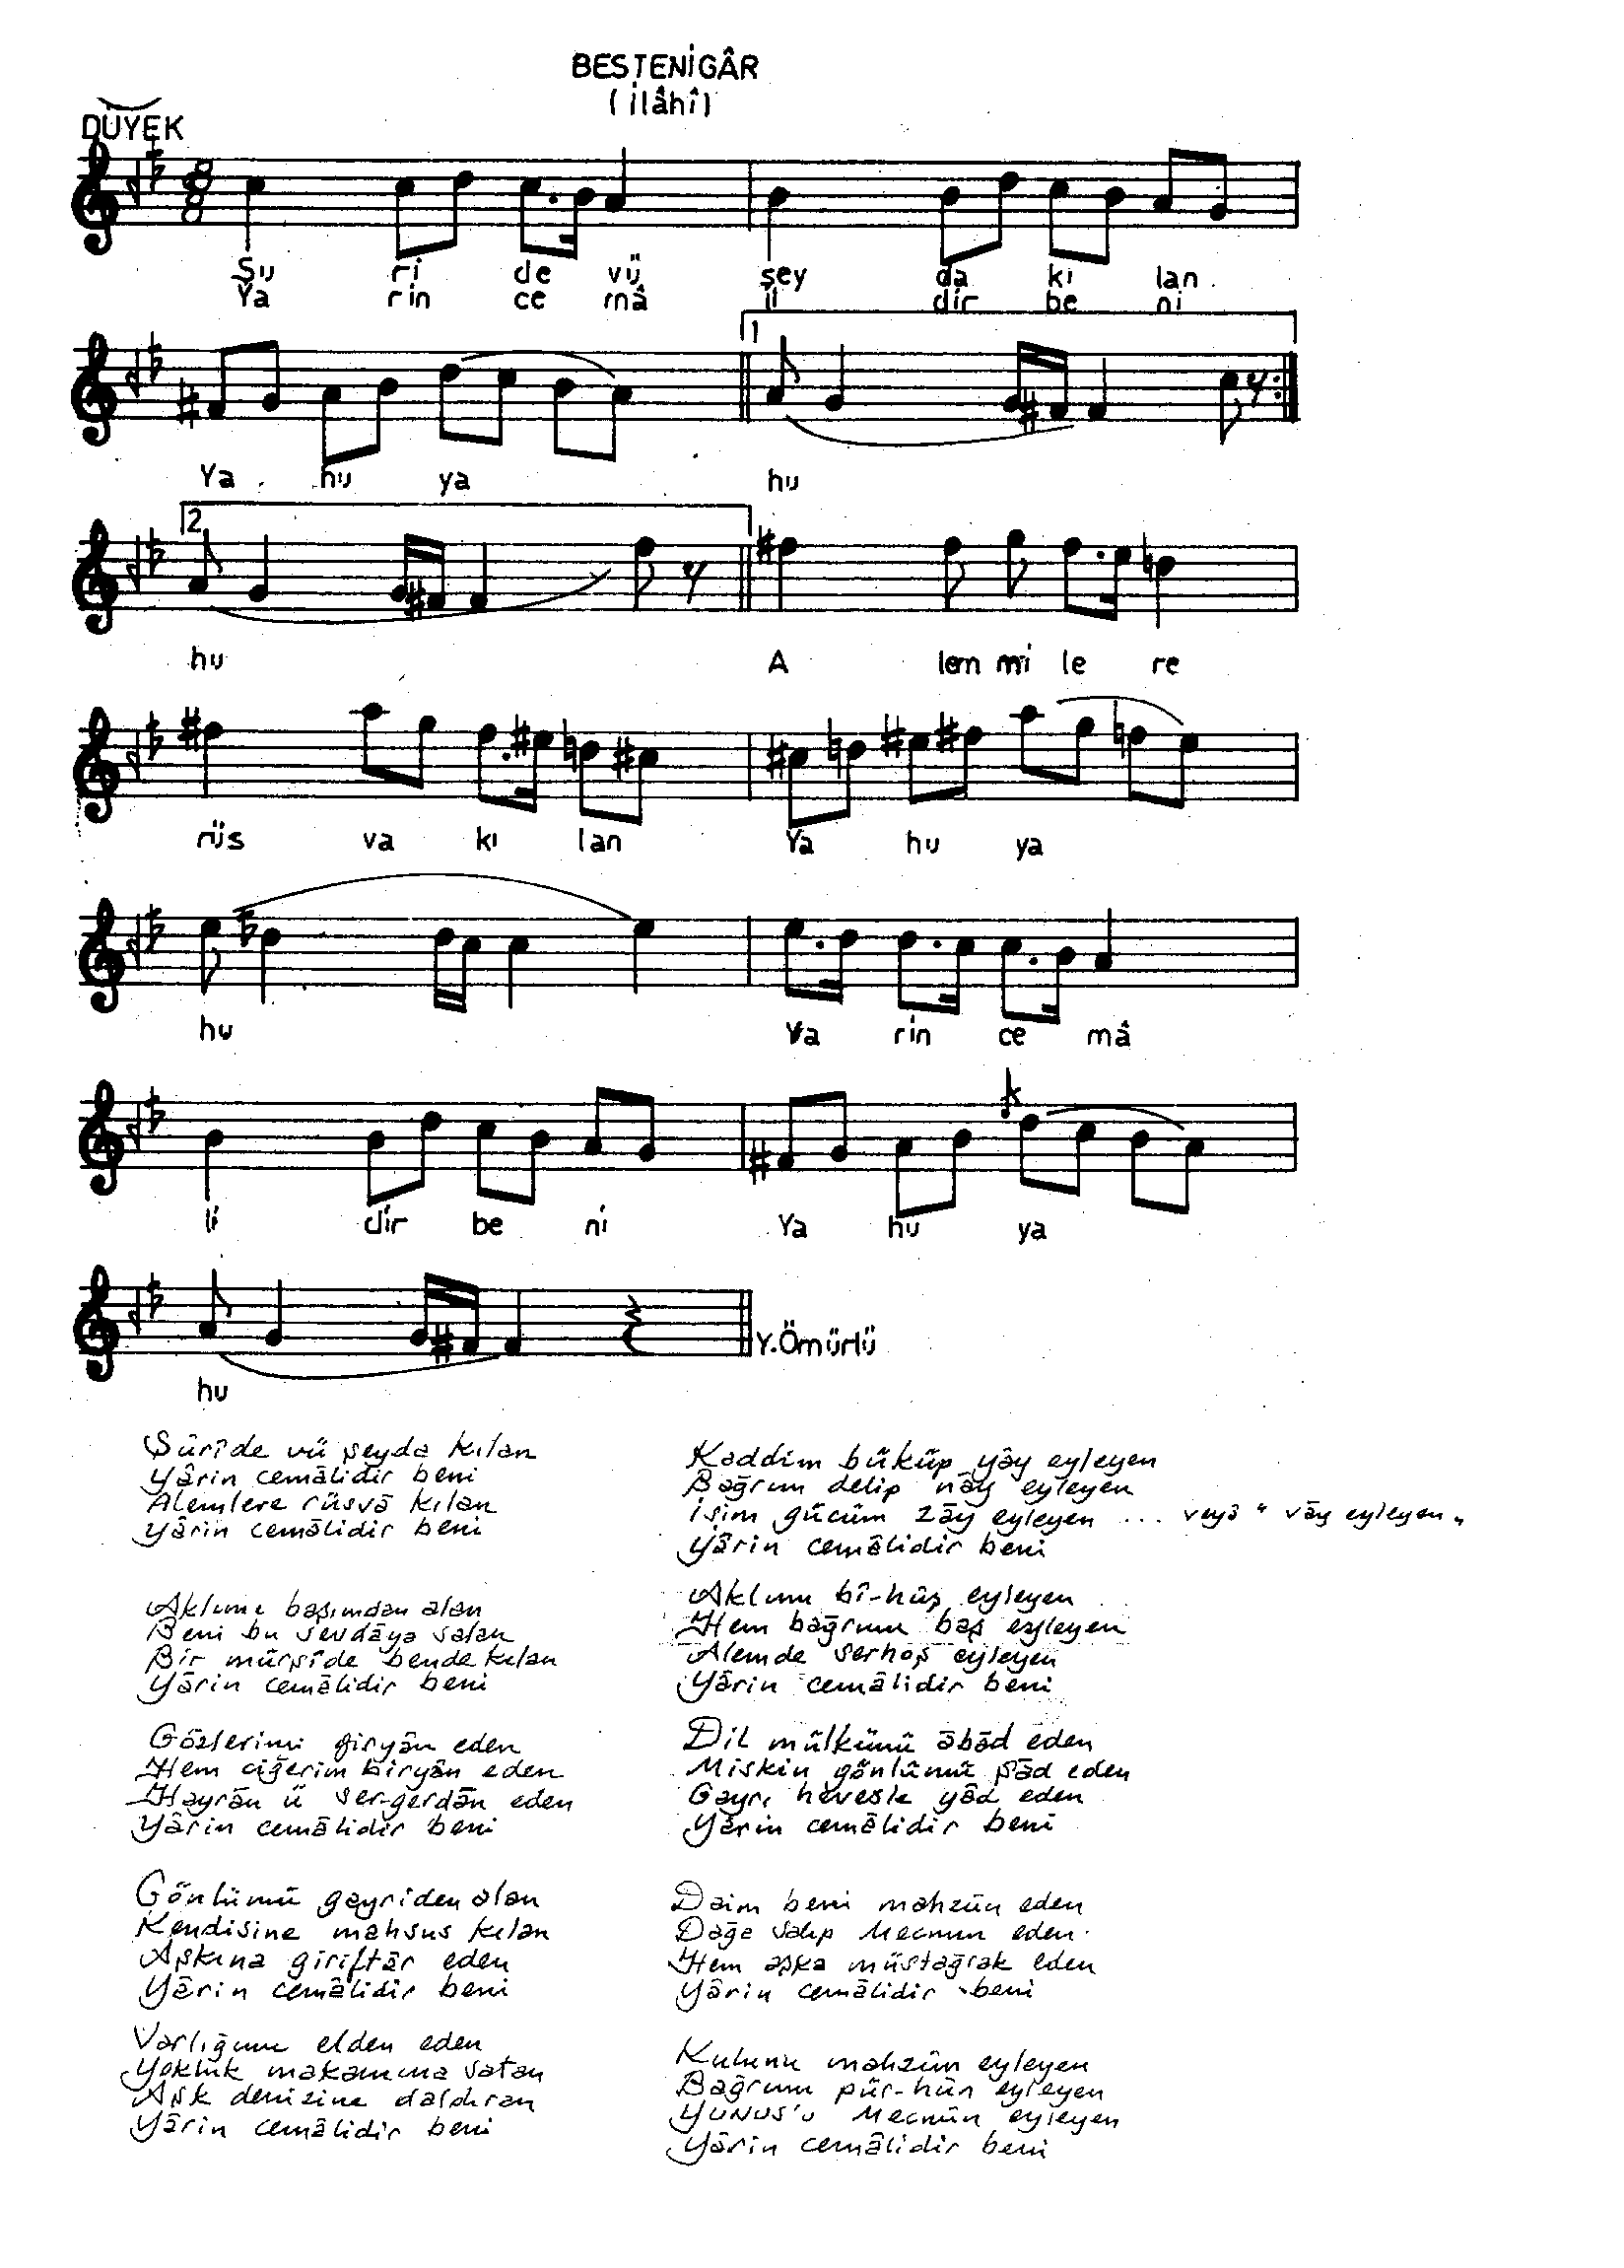 BESTENİGÂR
(İlâhî)
DÜYEK
8
8
Şu ri de vü şey da kı lan
Ya rin ce mâ li dir be ni
1
Ya hu ya hu
2
hu A lem mi le re
rüs va kı lan Ya hu ya
hu Ya rin ce mâ
li dir be ni Ya hu ya
Y.Ömürlü
hu
Şûrîde vü şeyda kılan
Yârin cemâlidir beni
Alemlere rüsvâ kılan
Yârin cemâlidir beni
Aklımı başımdan alan
Beni bu sevdâya salan
Bir mürşîde bende kılan
Yârin cemâlidir beni
Gözlerimi giryân eden
Hem ciğerim biryân eden
Hayrân ü ser-gerdân eden
Yârin cemâlidir beni
Gönlümü gayriden alan
Kendisine mahsus kılan
Aşkına giriftâr eden
Yârin cemâlidir beni
Varlığımı elden eden
Yokluk makamına satan
Aşk denizine daldıran
Yârin cemâlidir beni
Kaddim büküp yây eyleyen
Bağrım delip nây eyleyen
İşim gücüm zây eyleyen ... veyâ " vây eyleyen "
Yârin cemâlidir beni
Aklımı bî-hûş eyleyen
Hem bağrımı baş eyleyen
Alemde serhoş eyleyen
Yârin cemâlidir beni
Dil mülkünü âbâd eden
Miskin gönlümü şâd eden
Gayrı hevesle yâd eden
Yârin cemâlidir beni
Daim beni mahzûn eden
Dağa salıp Mecnun eden
Hem aşka müstağrak eden
Yârin cemâlidir beni
Kulunu mahzûn eyleyen
Bağrımı pür-hûn eyleyen
YUNUS'u Mecnûn eyleyen
Yârin cemâlidir beni